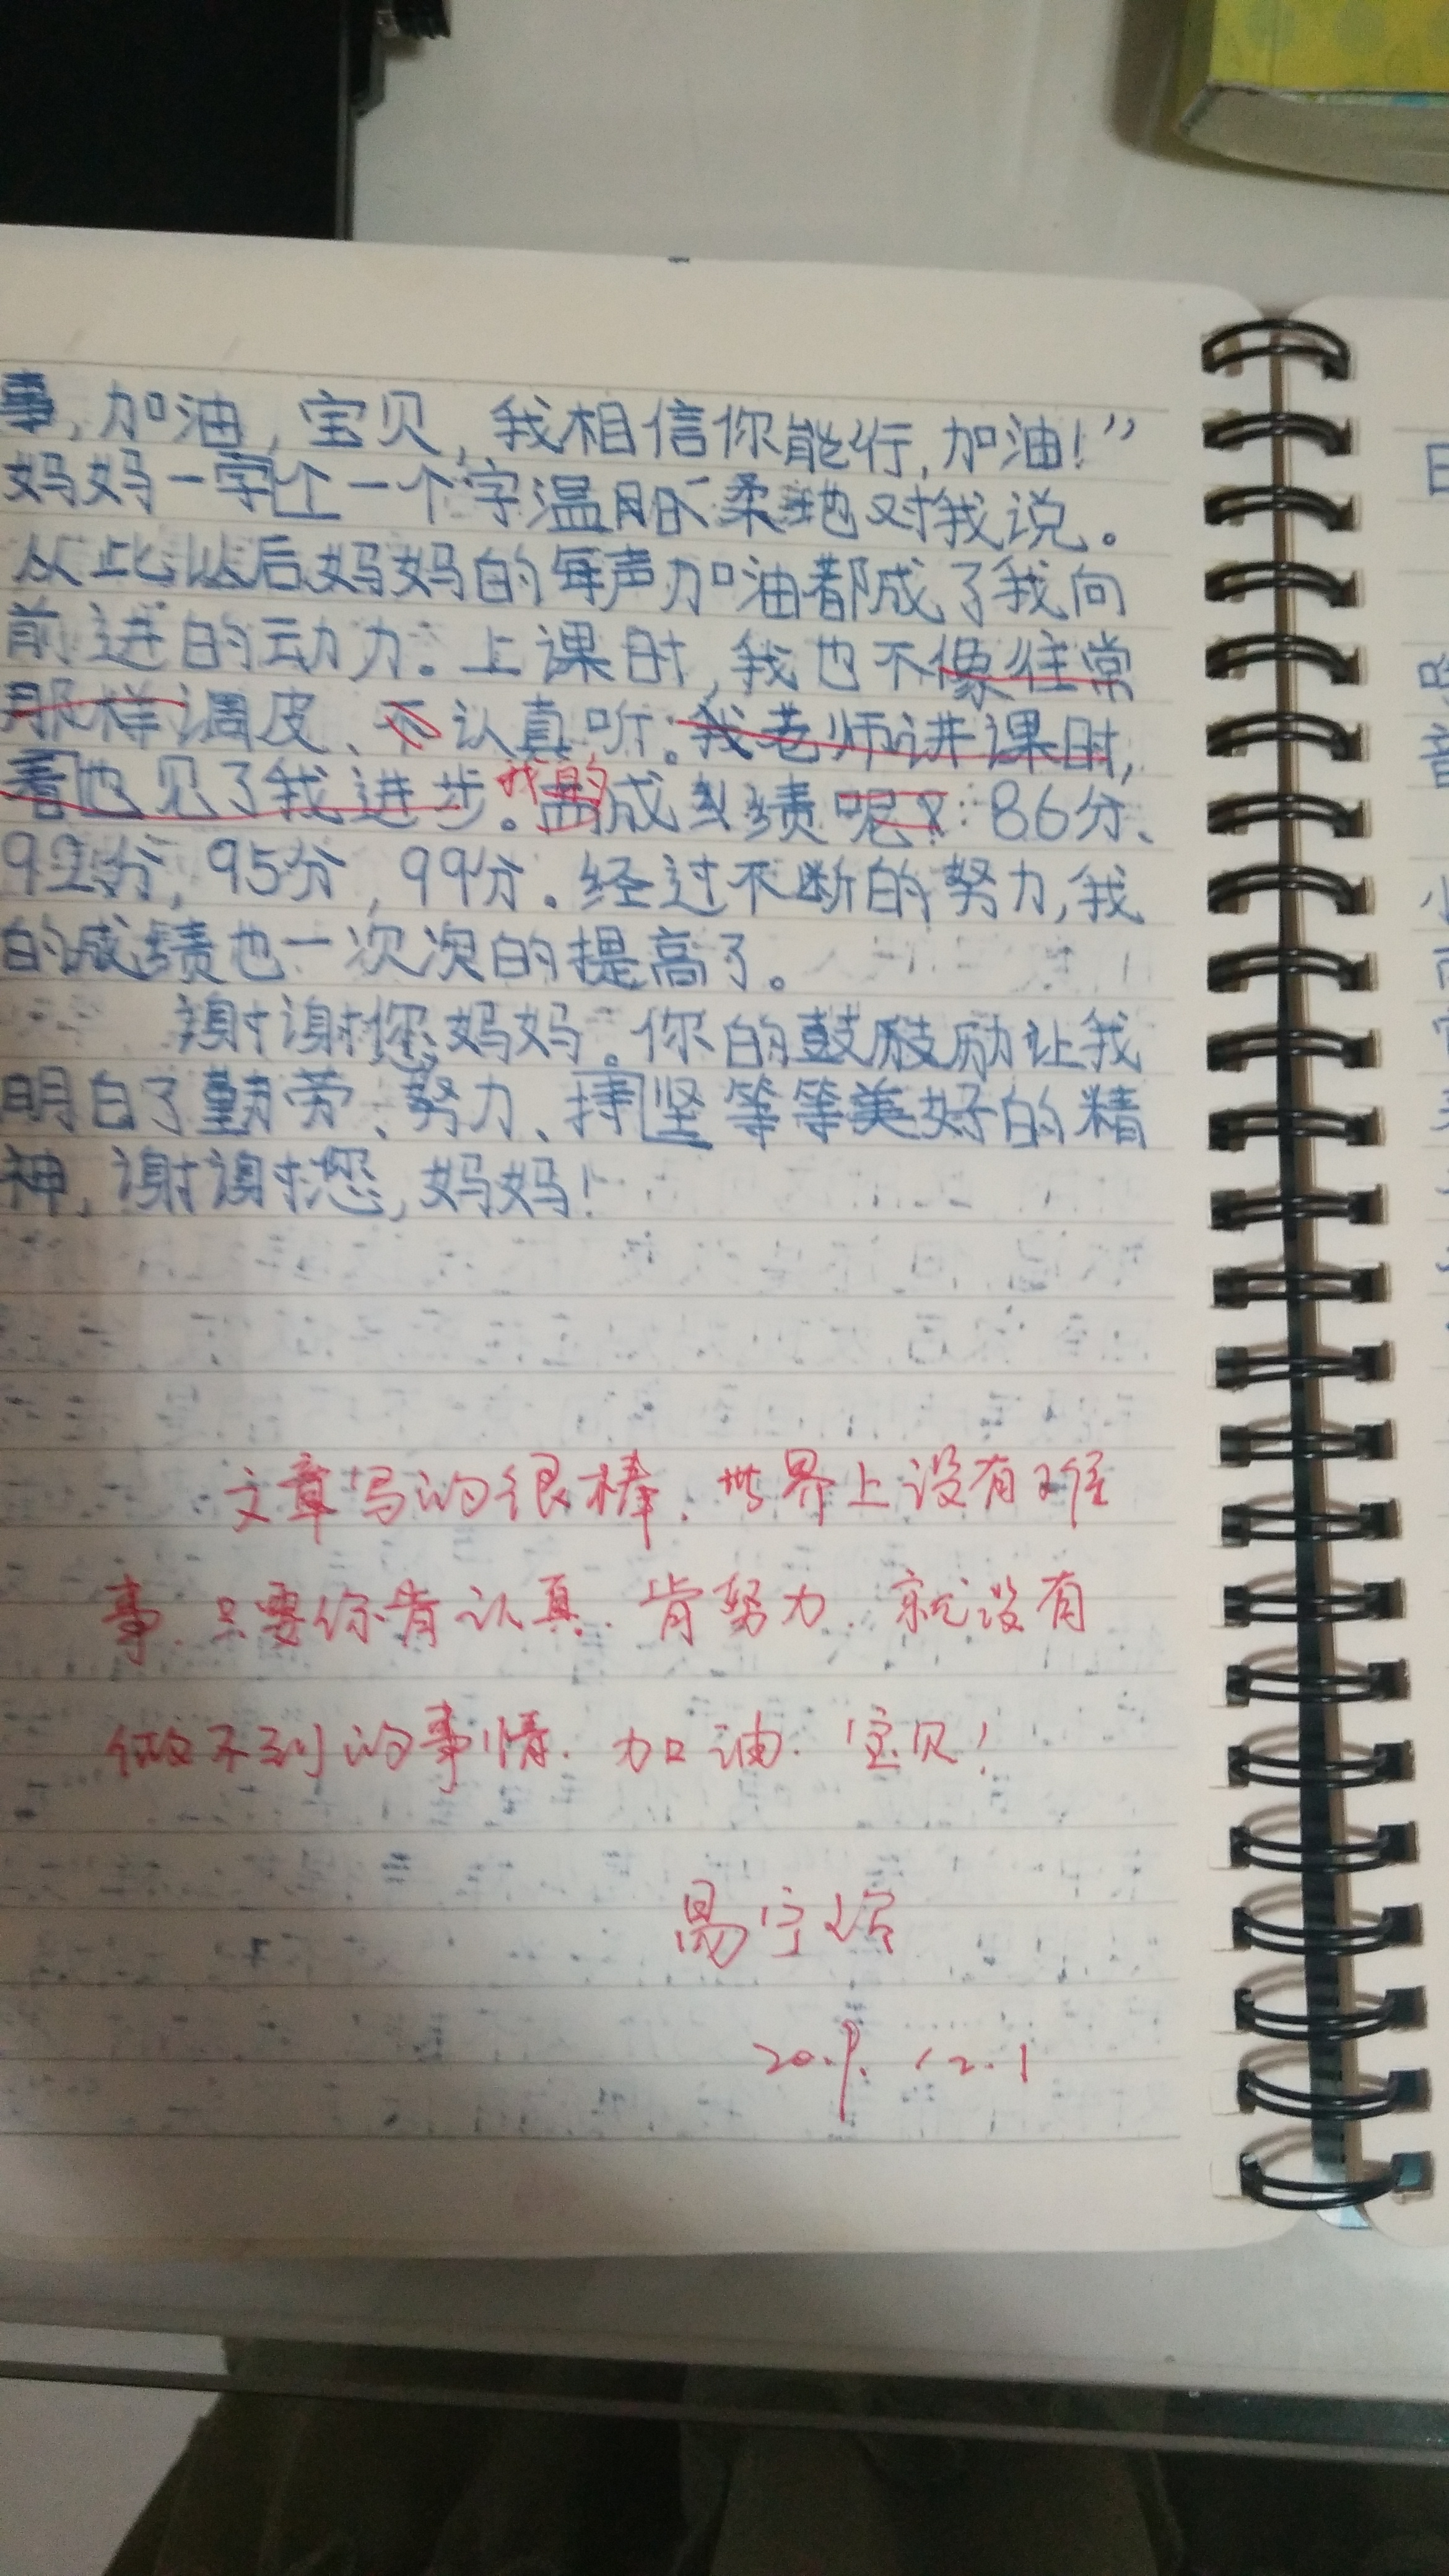 事,加油,宝贝,我相信你能行,加油!”
妈妈一字个一个字温柔地对我说。
从此以后妈妈的每声加油都成了我向
前进的动力。上课时,我也不像往常
那样调皮、不认真听。我老师讲课时,
看也见了我进步。我的成绩呢?:86分、
92分,95分,99分。经过不断的努力,我
的成绩也一次次的提高了。
谢谢您,妈妈。你的鼓励让我
明白了勤劳、努力、持坚等等美好的精
神,谢谢您,妈妈!
文章写的很棒.世界上没有难
事.只要你肯认真.肯努力.就没有
做不到的事情.加油.宝贝!
易宁
2019.12.1